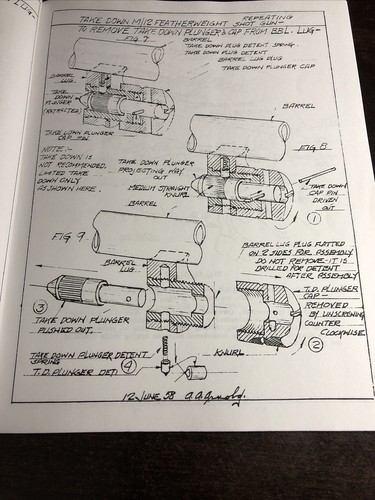 TAKE DOWN M/12 FEATHERWEIGHT REPEATING SHOT GUN-
TO REMOVE TAKE DOWN PLUNGER & CAP FROM BBL. LUG-
FIG 7
BARREL
TAKE DOWN PLUG DETENT SPRING.
TAKE DOWN PLUG DETENT
BARREL LUG PLUG
TAKE DOWN PLUNGER CAP
BARREL
LUG
TAKE
DOWN
PLUNGER
(RETRACTED)
TAKE DOWN PLUNGER
CAP PIN
BARREL
FIG 8
NOTE:-
TAKE DOWN IS
NOT RECOMMENDED.
LIMITED TAKE
DOWN ONLY
AS SHOWN HERE.
TAKE DOWN PLUNGER
PROJECTING WAY
OUT
MEDIUM STRAIGHT
KNURL
TAKE DOWN
CAP PIN
DRIVEN
OUT
1
BARREL
FIG 9.
BARREL
LUG
BARREL LUG PLUG FLATTED
ON 2 SIDES FOR ASSEMBLY
DO NOT REMOVE - IT IS
DRILLED FOR DETENT
AFTER ASSEMBLY
3
TAKE DOWN PLUNGER
PUSHED OUT
T.D. PLUNGER
CAP
REMOVED
BY UNSCREWING
COUNTER
CLOCKWISE
2
KNURL
TAKE DOWN PLUNGER DETENT
SPRING
4
T.D. PLUNGER DET.
12 JUNE 58 A.A. Arnold.